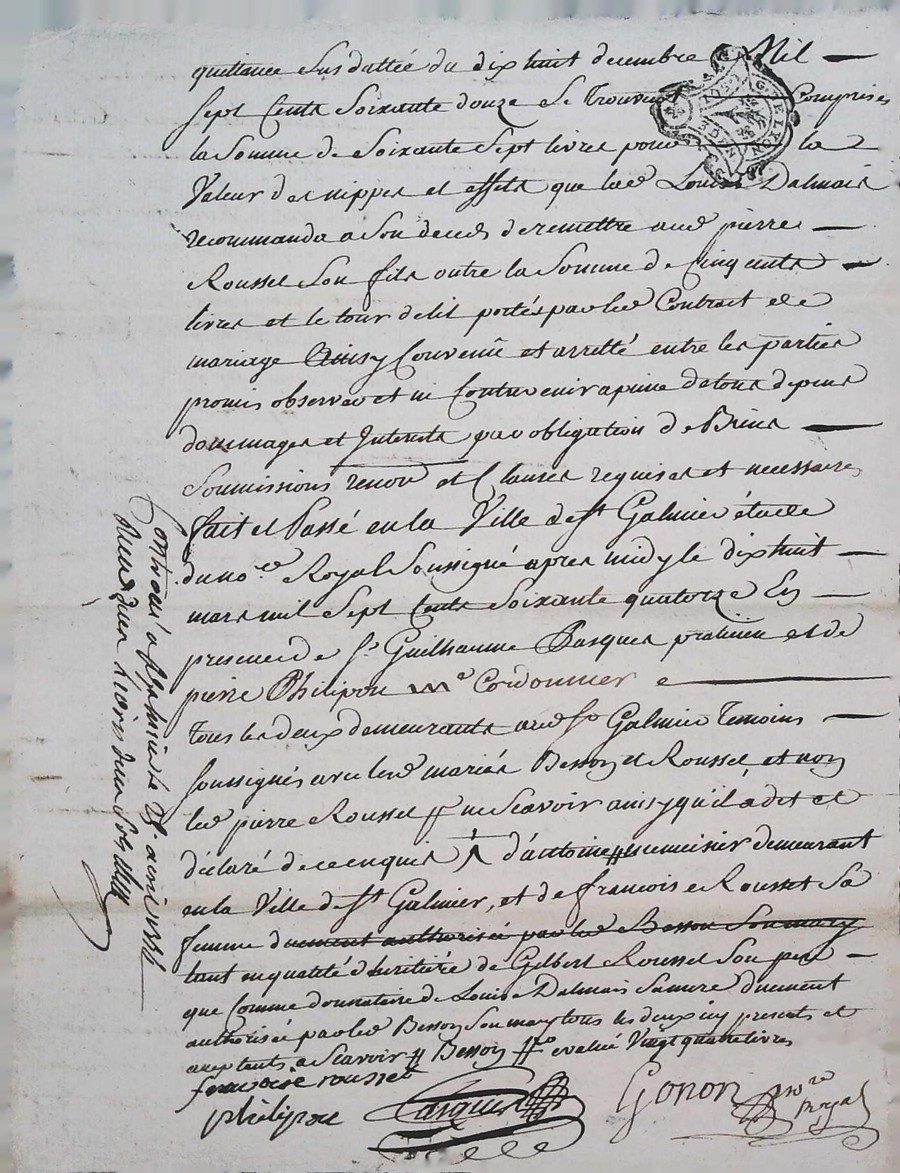 quittance sus dattée du dix huit decembre Mil
sept Cents Soixante douze Se Trouvent Comprises
la Somme de Soixante Sept livres pour la
Valeur des nippes et effets que lad Louise Dalmais
recommanda a Son deces de remettre aud pierre
Rousset Son fils outre la Somme de Cinq cents
livres et le tour de lit portés par led Contract de
mariage Ainsy Convenu et arretté entre les parties
promis observer et ni Contrevenir a peine de tous depens
dommages et Interets par obligation de Biens
Soumissions renon et Clauses requises et necessaires
fait et Passé en la Ville de St Galmier étude
du no.re Royal Soussigné apres midy le dix huit
mars mil Sept Cents Soixante quatorze En
presence de Sr Guilhaume Pasquet praticien et de
pierre Philipon me Cordonnier
Tous les deux demeurants aud St Galmier Temoins
Soussignés avec led mariés Besson et Rousset et non
led pierre Rousset pr ne Scavoir ainsy qu'il a dit et
déclaré de ce enquis d'antoine menuisier demeurant
en la Ville de St Galmier, et de francoise Rousset Sa
femme duement authorisée par led Besson Son mary
tant en qualité d'heritière de Gilbert Rousset Son pere
que Comme donnataire de Louise Dalmais Sa mere duement
authorisée par led Besson Son mary tous les deux icy presents et
acceptants a Scavoir Besson evalué Vingt quatre livres
francoise rousset
philipon Pasquet Gonon no.re
royal
Controllé a St Galmier le 28
Receu